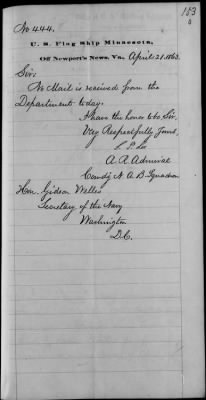 153
No 444.
U. S. Flag Ship Minnesota,
Off Newport's News, Va., April 21. 1863.
Sir:
No Mail is received from the
Department to day.
I have the honor to be Sir,
Very Respectfully Yours,
S. P. Lee
A. R. Admiral
Comdg N. A. B. Squadron
Hon. Gideon Welles
Secretary of the Navy
Washington
D.C.